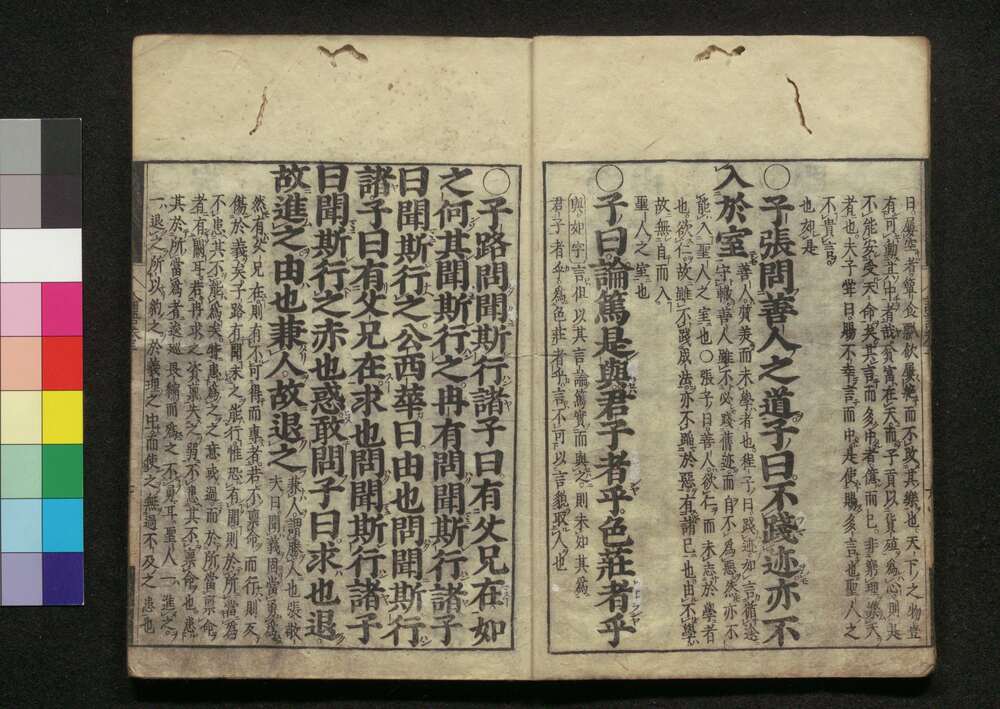 曰屢空者簞食瓢飲屢絕而不改其樂也天下之物豈
有可動其中者哉貧富在天而子貢以貨殖為心則是
不能安受天命矣其言而多中者億而已非窮理樂天
者也夫子嘗曰賜不幸言而中是使賜多言也聖人之
不貴言
也如是
○子張問善人之道子曰不踐迹亦不
入於室
善人質美而未學者也程子曰踐迹如言循途
守轍善人雖不必踐舊迹而自不為惡然亦不
能入聖人之室也○張子曰善人欲仁而未志於學者
也欲仁故雖不踐成法亦不蹈於惡有諸己也由不學
故無自而入
聖人之室也
○子曰論篤是與君子者乎色莊者乎
與如字言但以其言論篤實而與之則未知其為
君子者乎為色莊者乎言不可以言貌取人也
○子路問聞斯行諸子曰有父兄在如
之何其聞斯行之冉有問聞斯行諸子
曰聞斯行之公西華曰由也問聞斯行
諸子曰有父兄在求也問聞斯行諸子
曰聞斯行之赤也惑敢問子曰求也退
故進之由也兼人故退之
兼人謂勝人也張敬
夫曰聞義固當勇為
然有父兄在則有不可得而專者若不稟命而行則反
傷於義矣子路有聞未之能行惟恐有聞則於所當為
不患其不能為矣特患為之之意或過而於所當稟命
者有闕耳若冉求之資稟失之弱不患其不稟命也患
其於所當為者逡巡畏縮而為之不勇耳聖人一進之
一退之所以約之於義理之中而使之無過不及之患也